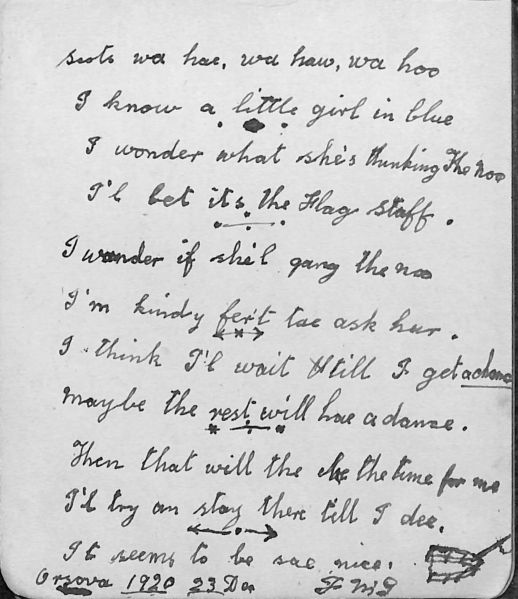 scots wa hae, wa haw, wa hoo
I know a little girl in blue
I wonder what she's thinking The noo
I'l bet its the Flag staff.
I wonder if she'l gang the noo
I'm kindy fer't tae ask hur.
I think I'l wait till I get a chance
Maybe the rest will hae a dance.
Then that will the be the time for me
I'll try an stay there till I dee.
It seems to be sae nice.
Orsova 1920 23 Dec